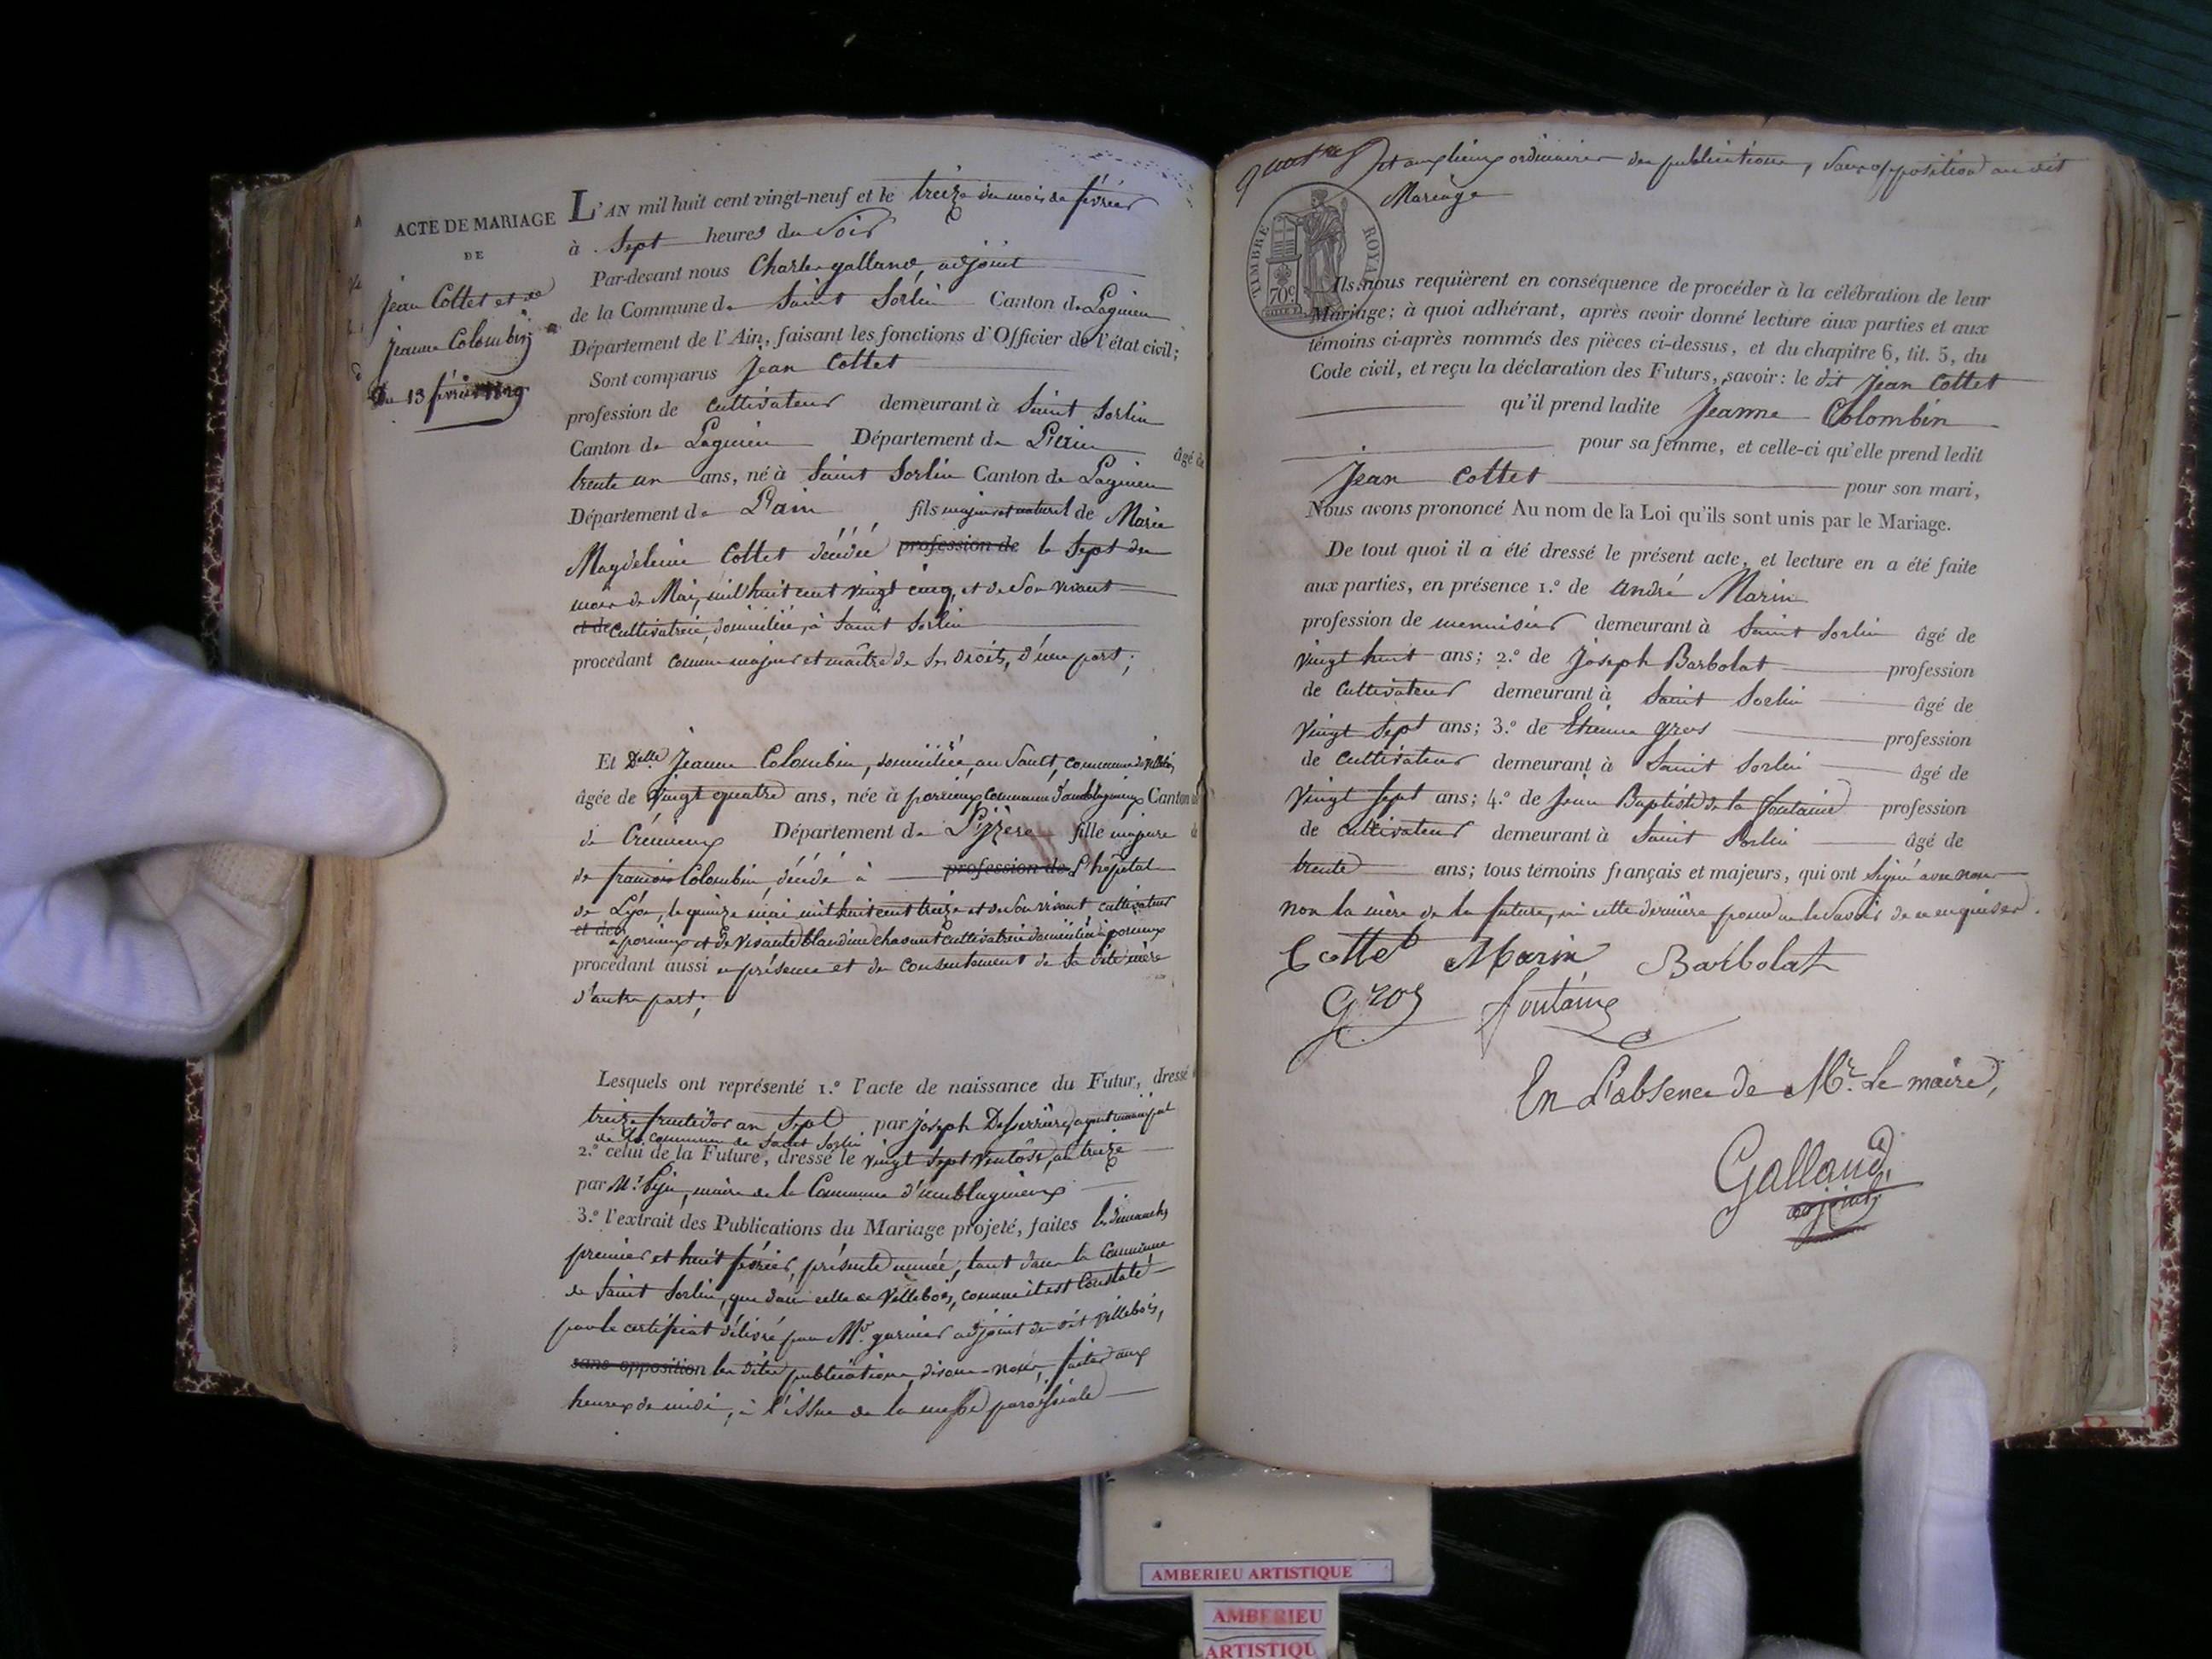 ACTE DE MARIAGE
DE
Jean Collet et de
Jeanne Colombin
Du 13 février 1829
L'AN mil huit cent vingt-neuf et le treize du mois de février
à Sept heures du Soir
Par-devant nous Charles galland, adjoint
de la Commune de Saint Sorlin Canton de Lagnieu
Département de l'Ain, faisant les fonctions d'Officier de l'état civil;
Sont comparus Jean Collet
profession de cultivateur demeurant à Saint Sorlin
Canton de Lagnieu Département de L'ain âgé de
trente un ans, né à Saint Sorlin Canton de Lagnieu
Département de L'ain fils majeur et naturel de Marie
Magdeleine Collet décédée profession de le Sept du
mois de Mai, mil huit cent vingt cinq, et de Son vivant
et de cultivatrice, domiciliée, à Saint Sorlin
procédant comme majeur et maître de Ses droits, d'une part;
Et Delle Jeanne Colombin, domiciliée, au Sault, commune de villebois
âgée de vingt quatre ans, née à porcieux commune d'amblagnieux Canton
de Crémieux Département de L'izère fille majeure
de francois Colombin, décédé à profession de L'hôpital
de Lyon, le quinze mai mil huit cent treize et de Son vivant cultivateur
et de à porcieux et de vivante blandine chavant cultivatrice domiciliée à porcieux
procédant aussi en présence et du consentement de Sa dite mère
d'autre part;
Lesquels ont représenté 1.° l'acte de naissance du Futur, dressé
treize fructidor an Sept par joseph Desserrière agent municipal
de la commune de Saint Sorlin
2.° celui de la Future, dressé le vingt Sept Ventôse, an treize
par Mr maire de la Commune d'amblagnieux
3.° l'extrait des Publications du Mariage projeté, faites les dimanches
premier et huit février, présente année, tant dans la Commune
de Saint Sorlin, que dans celle de Villebois, comme il est Constaté
par le certificat délivré par Mr. garnier adjoint du dit villebois,
sans opposition les dites publications, disons-nous, faites aux
heures de midi, à l'issue de la messe paroissiale
et aux lieux ordinaires des publications, Sans opposition au dit
Mariage
TIMBRE ROYAL
70c
Ils nous requièrent en conséquence de procéder à la célébration de leur
Mariage; à quoi adhérant, après avoir donné lecture aux parties et aux
témoins ci-après nommés des pièces ci-dessus, et du chapitre 6, tit. 5, du
Code civil, et reçu la déclaration des Futurs, savoir: le dit Jean Collet
qu'il prend ladite Jeanne Colombin
pour sa femme, et celle-ci qu'elle prend ledit
Jean Collet pour son mari,
Nous avons prononcé Au nom de la Loi qu'ils sont unis par le Mariage.
De tout quoi il a été dressé le présent acte, et lecture en a été faite
aux parties, en présence 1.° de André Marin
profession de menuisier demeurant à Saint Sorlin âgé de
vingt huit ans; 2.° de Joseph Barbolat profession
de Cultivateur demeurant à Saint Sorlin âgé de
vingt Sept ans; 3.° de Etienne gros profession
de cultivateur demeurant à Saint Sorlin âgé de
vingt Sept ans; 4.° de Jean Baptiste de la fontaine profession
de cultivateur demeurant à Saint Sorlin âgé de
trente ans; tous témoins français et majeurs, qui ont Signé avec nous
non la mère de la future, ni cette dernière pour ne le Savoir de ce enquises.
Collet Marin Barbolat
Gros fontaine
En L'absence de Mr. Le maire,
Galland,
adjoint
AMBERIEU ARTISTIQUE
AMBERIEU
ARTISTIQU